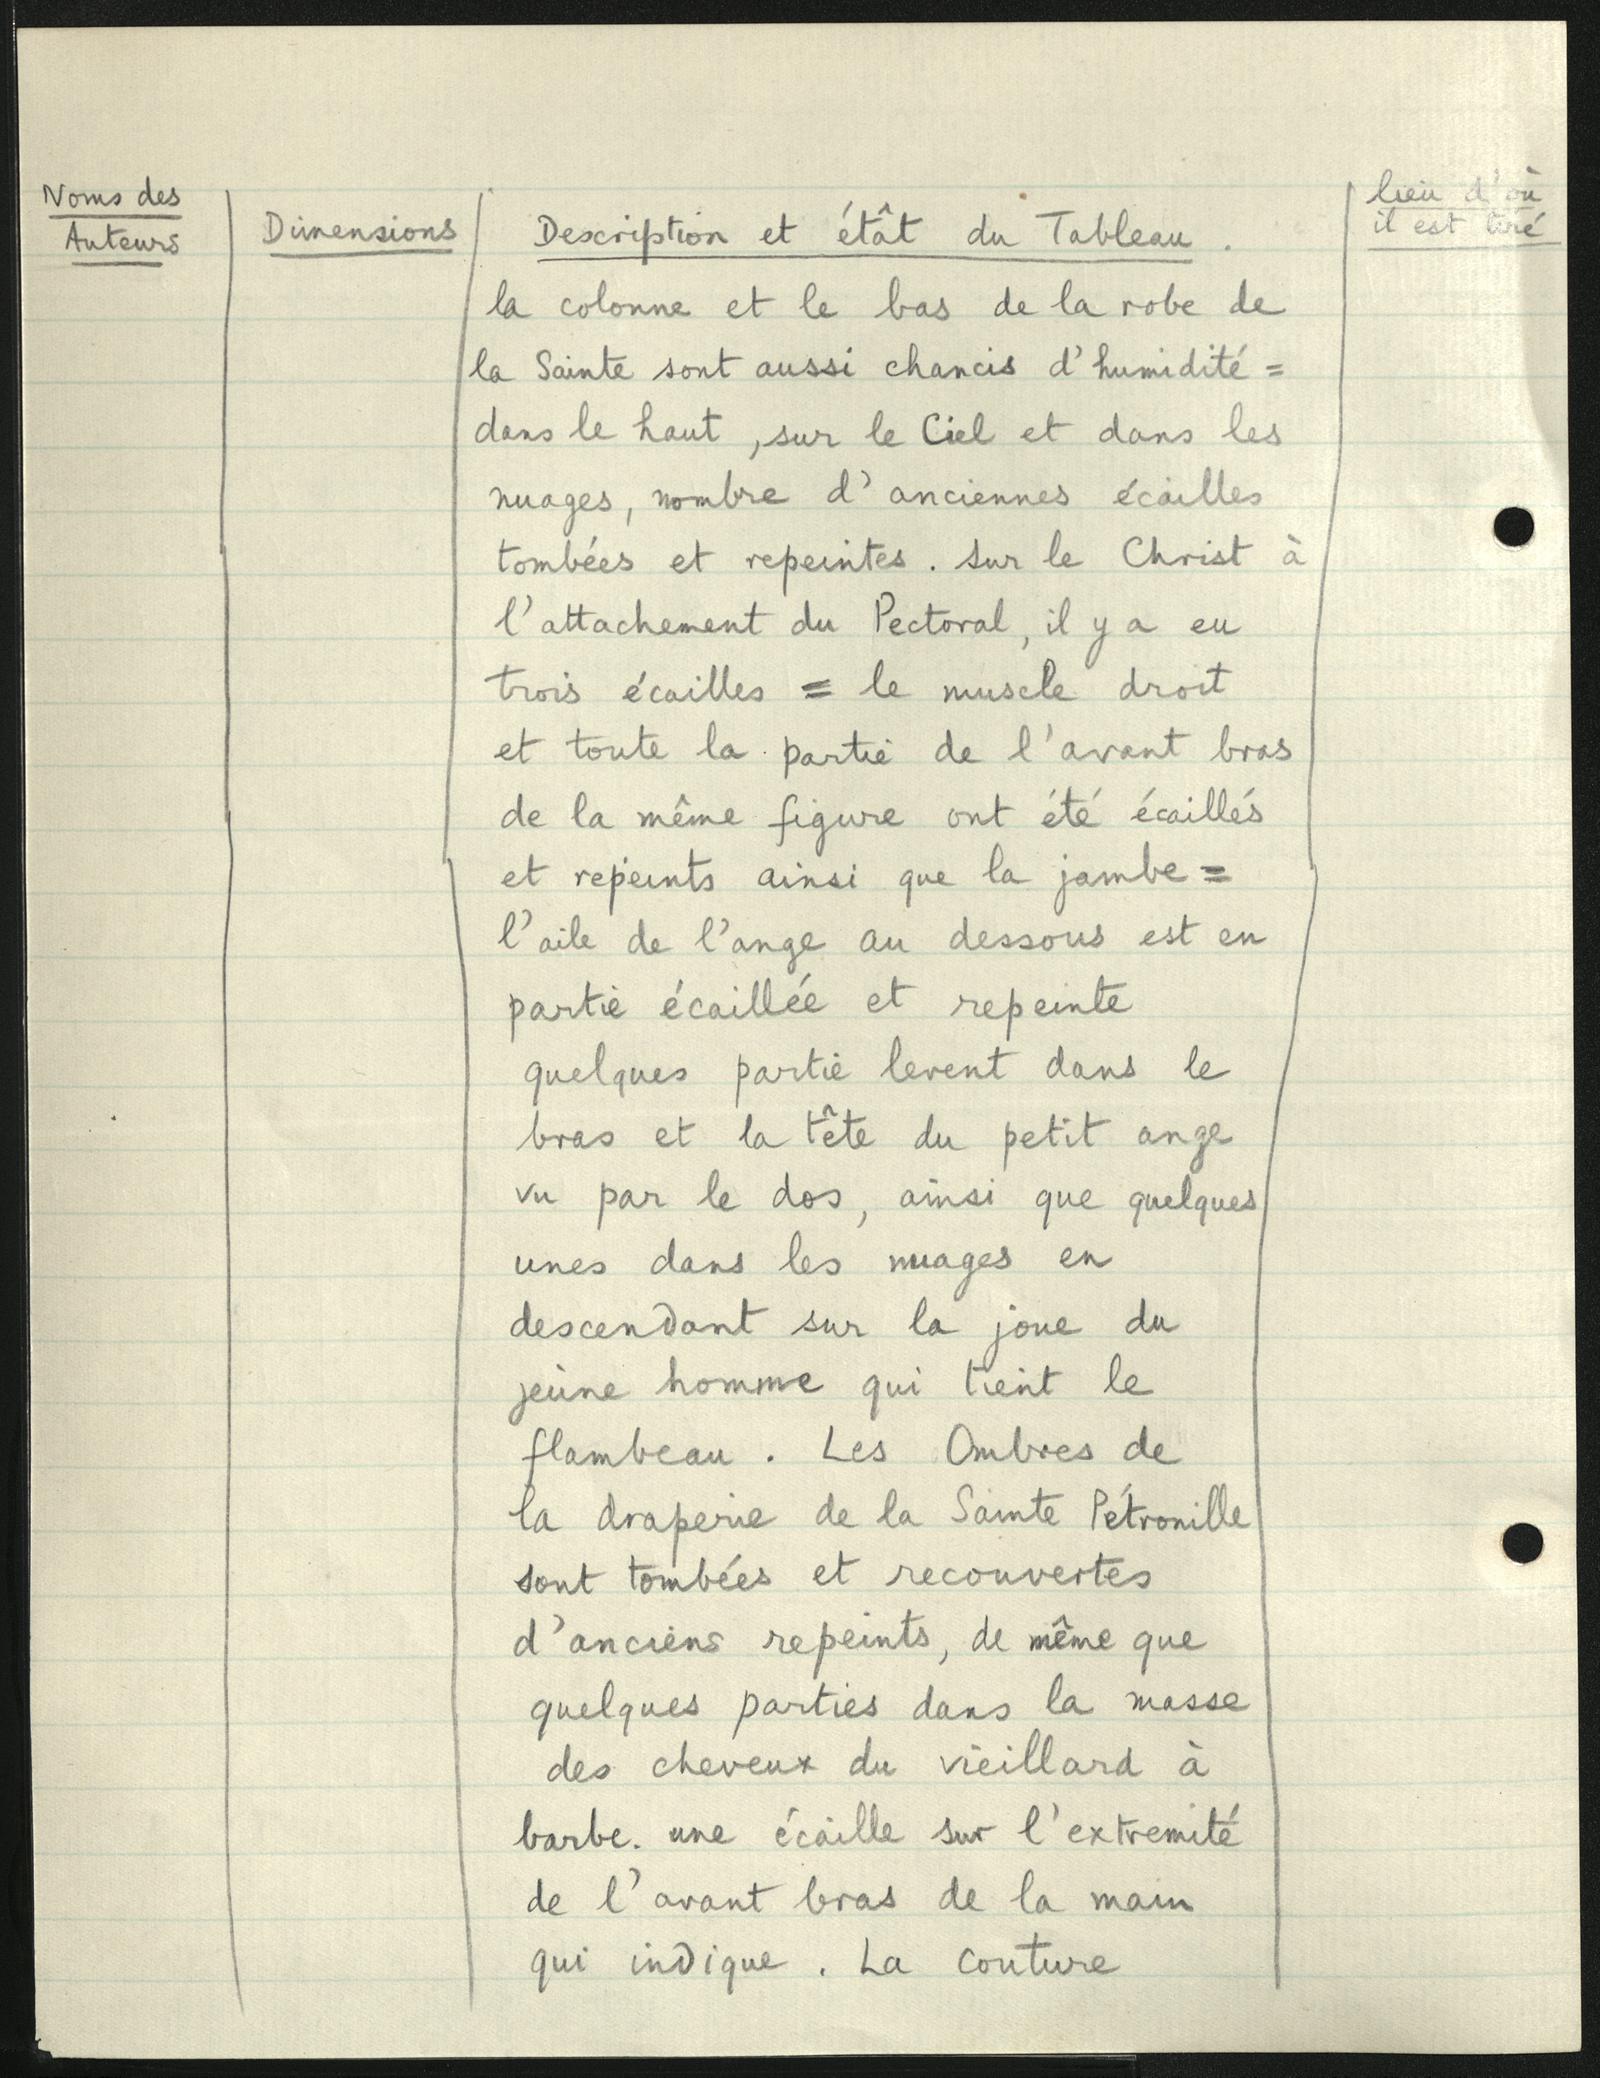 Noms des
Auteurs
Dimensions
Description et étât du Tableau.
lieu d'où
il est tiré
la colonne et le bas de la robe de
la Sainte sont aussi chancis d'humidité =
dans le haut, sur le Ciel et dans les
nuages, nombre d'anciennes écailles
tombées et repeintes. sur le Christ à
l'attachement du Pectoral, il y a eu
trois écailles = le muscle droit
et toute la partie de l'avant bras
de la même figure ont été écaillés
et repeints ainsi que la jambe =
l'aile de l'ange au dessous est en
partie écaillée et repeinte
quelques partie levent dans le
bras et la tête du petit ange
vu par le dos, ainsi que quelques
unes dans les nuages en
descendant sur la joue du
jeune homme qui tient le
flambeau. Les Ombres de
la draperie de la Sainte Pétronille
sont tombées et recouvertes
d'anciens repeints, de même que
quelques parties dans la masse
des cheveux du vieillard à
barbe. une écaille sur l'extremité
de l'avant bras de la main
qui indique. La couture